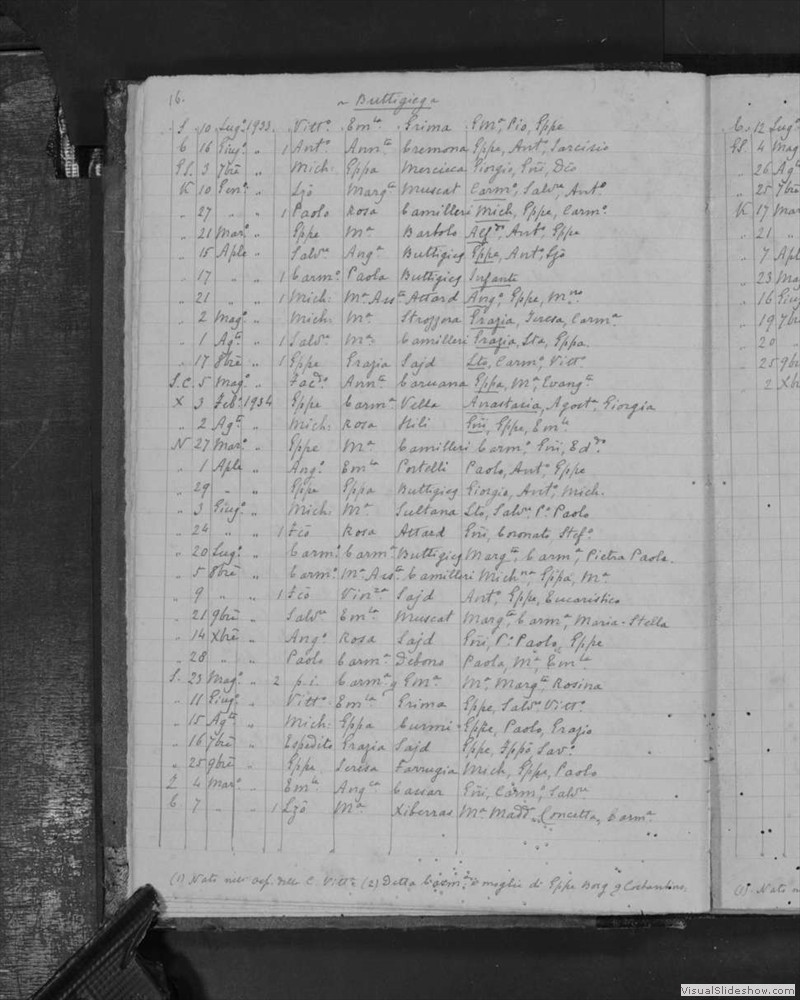 16. ~ Buttigieg ~
S 10 Lugº 1933. Vittº Emla Grima Emª, Pio, Gppe
C 16 Giugº „ 1 Antº Annta Cremona Gppe, Antº, Tarcisio
GS. 3 7bre „ Mich: Gppa Mercieca Giorgio, Gni,
K 10 Genº „ Lzō Margta Muscat Carmº, Salvre, Antº
„ 27 „ „ 1 Paolo Rosa Camilleri Mich, Gppe, Carmº
„ 21 Marº „ Gppe Mª Bartolo Alfdo, Antº, Gppe
„ 15 Aple „ Salvre Angª Buttigieg Gppa, Antº, Lzō
„ 17 „ „ 1 Carmº Paola Buttigieg Infante
„ 21 „ „ 1 Mich: Mª Assta Attard Angº, Gppe,
„ 2 Magº „ Mich: Mª Grazia, Teresa, Carmª
„ 1 Agto „ 1 Salvre Mª Camilleri Grazia, Lta, Gppa.
„ 17 8bre „ 1 Gppe Grazia Sajd Lto, Carmº, Vittº
S.C. 5 Magº „ Annta Caruana Gppa, Mª, Evangta
X 3 Febº 1934 Gppe Carmª Vella Anastasia, Agostª, Giorgia
„ 2 Agto „ Mich: Rosa Gni, Gppe, Emle
N 27 Marº „ Gppe Mª Camilleri Carmº, Gni, Eddo
„ 1 Aple „ Angº Emla Portelli Paolo, Antº, Gppe
„ 29 „ „ Gppe Gppa Buttigieg Giorgio, Antº, Mich.
„ 3 Giugº „ Mich: Mª Sultana Lto, Salvre, Pº Paolo
„ 24 „ „ 1 Fcō Rosa Attard Gni, Coronato, Stefº
„ 20 Lugº „ Carmº Carmª Buttigieg Margta, Carmª, Pietra Paola.
„ 5 8bre „ Carmº Mª Assta Camilleri Michna, Gppa, Mª
„ 9 „ „ 1 Fcō Vinza Sajd Antº, Gppe, Eucaristico
„ 21 9bre „ Salvre Emla Muscat Margta, Carmª, Maria-Stella
„ 14 Xbre „ Angº Rosa Sajd Gni, Pº Paolo, Gppe
„ 28 „ „ Paolo Carmª Debono Paola, Mª, Emla
S. 23 Magº „ 2 p.i. Carmª Emª Mª, Margta, Rosina
„ 11 Giugº „ Vittº Emla Grima Gppe, Salvre, Vittº
„ 15 Agto „ Mich: Gppa Curmi Gppe, Paolo, Grazio
„ 16 7bre „ Espedito Grazia Sajd Gppe, Fppo, Savº
„ 25 9bre „ Gppe Teresa Farrugia Mich, Gppe, Paolo
Z 4 Marº „ Emle Angca Caesar Gni, Carmº, Salvre
C 7 „ „ 1 Lzō Mª Xiberras Mª Madd, Concetta, Carmª
(1) Nato Vittª (2) Detta Carmª è moglie di Gppe Borg
C. 12 Lugº
GS. 4 Mag
„ 26 Agto
„ 25 7bre
K 17 Mar
„ 21 „
„ 7 Apl
„ 23 Mag
„ 16 Giug
„ 19 7br
„ 20 „
„ 25 9br
„ 2 Xbr
(1) Nato n
VisualSlideshow.com